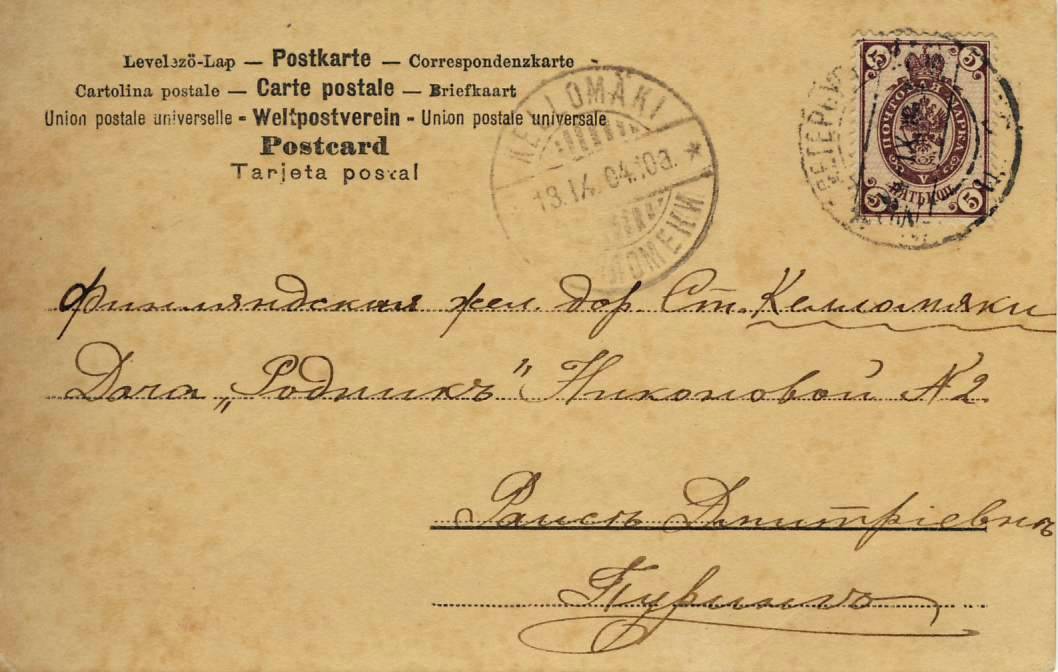 Levelező-Lap — Postkarte — Correspondenzkarte
Cartolina postale — Carte postale — Briefkaart
Union postale universelle - Weltpostverein - Union postale universale
Postcard
Tarjeta postal
KELLOMÄKI
13.IX.04.10a.
ПОЧТОВАЯ МАРКА
5 5
ПЯТЬ КОП.
5 5
Финляндская жел. дор. Ст. Келломяки
Дача „Родникъ" Никоновой № 2
Раисѣ Дмитріевнѣ